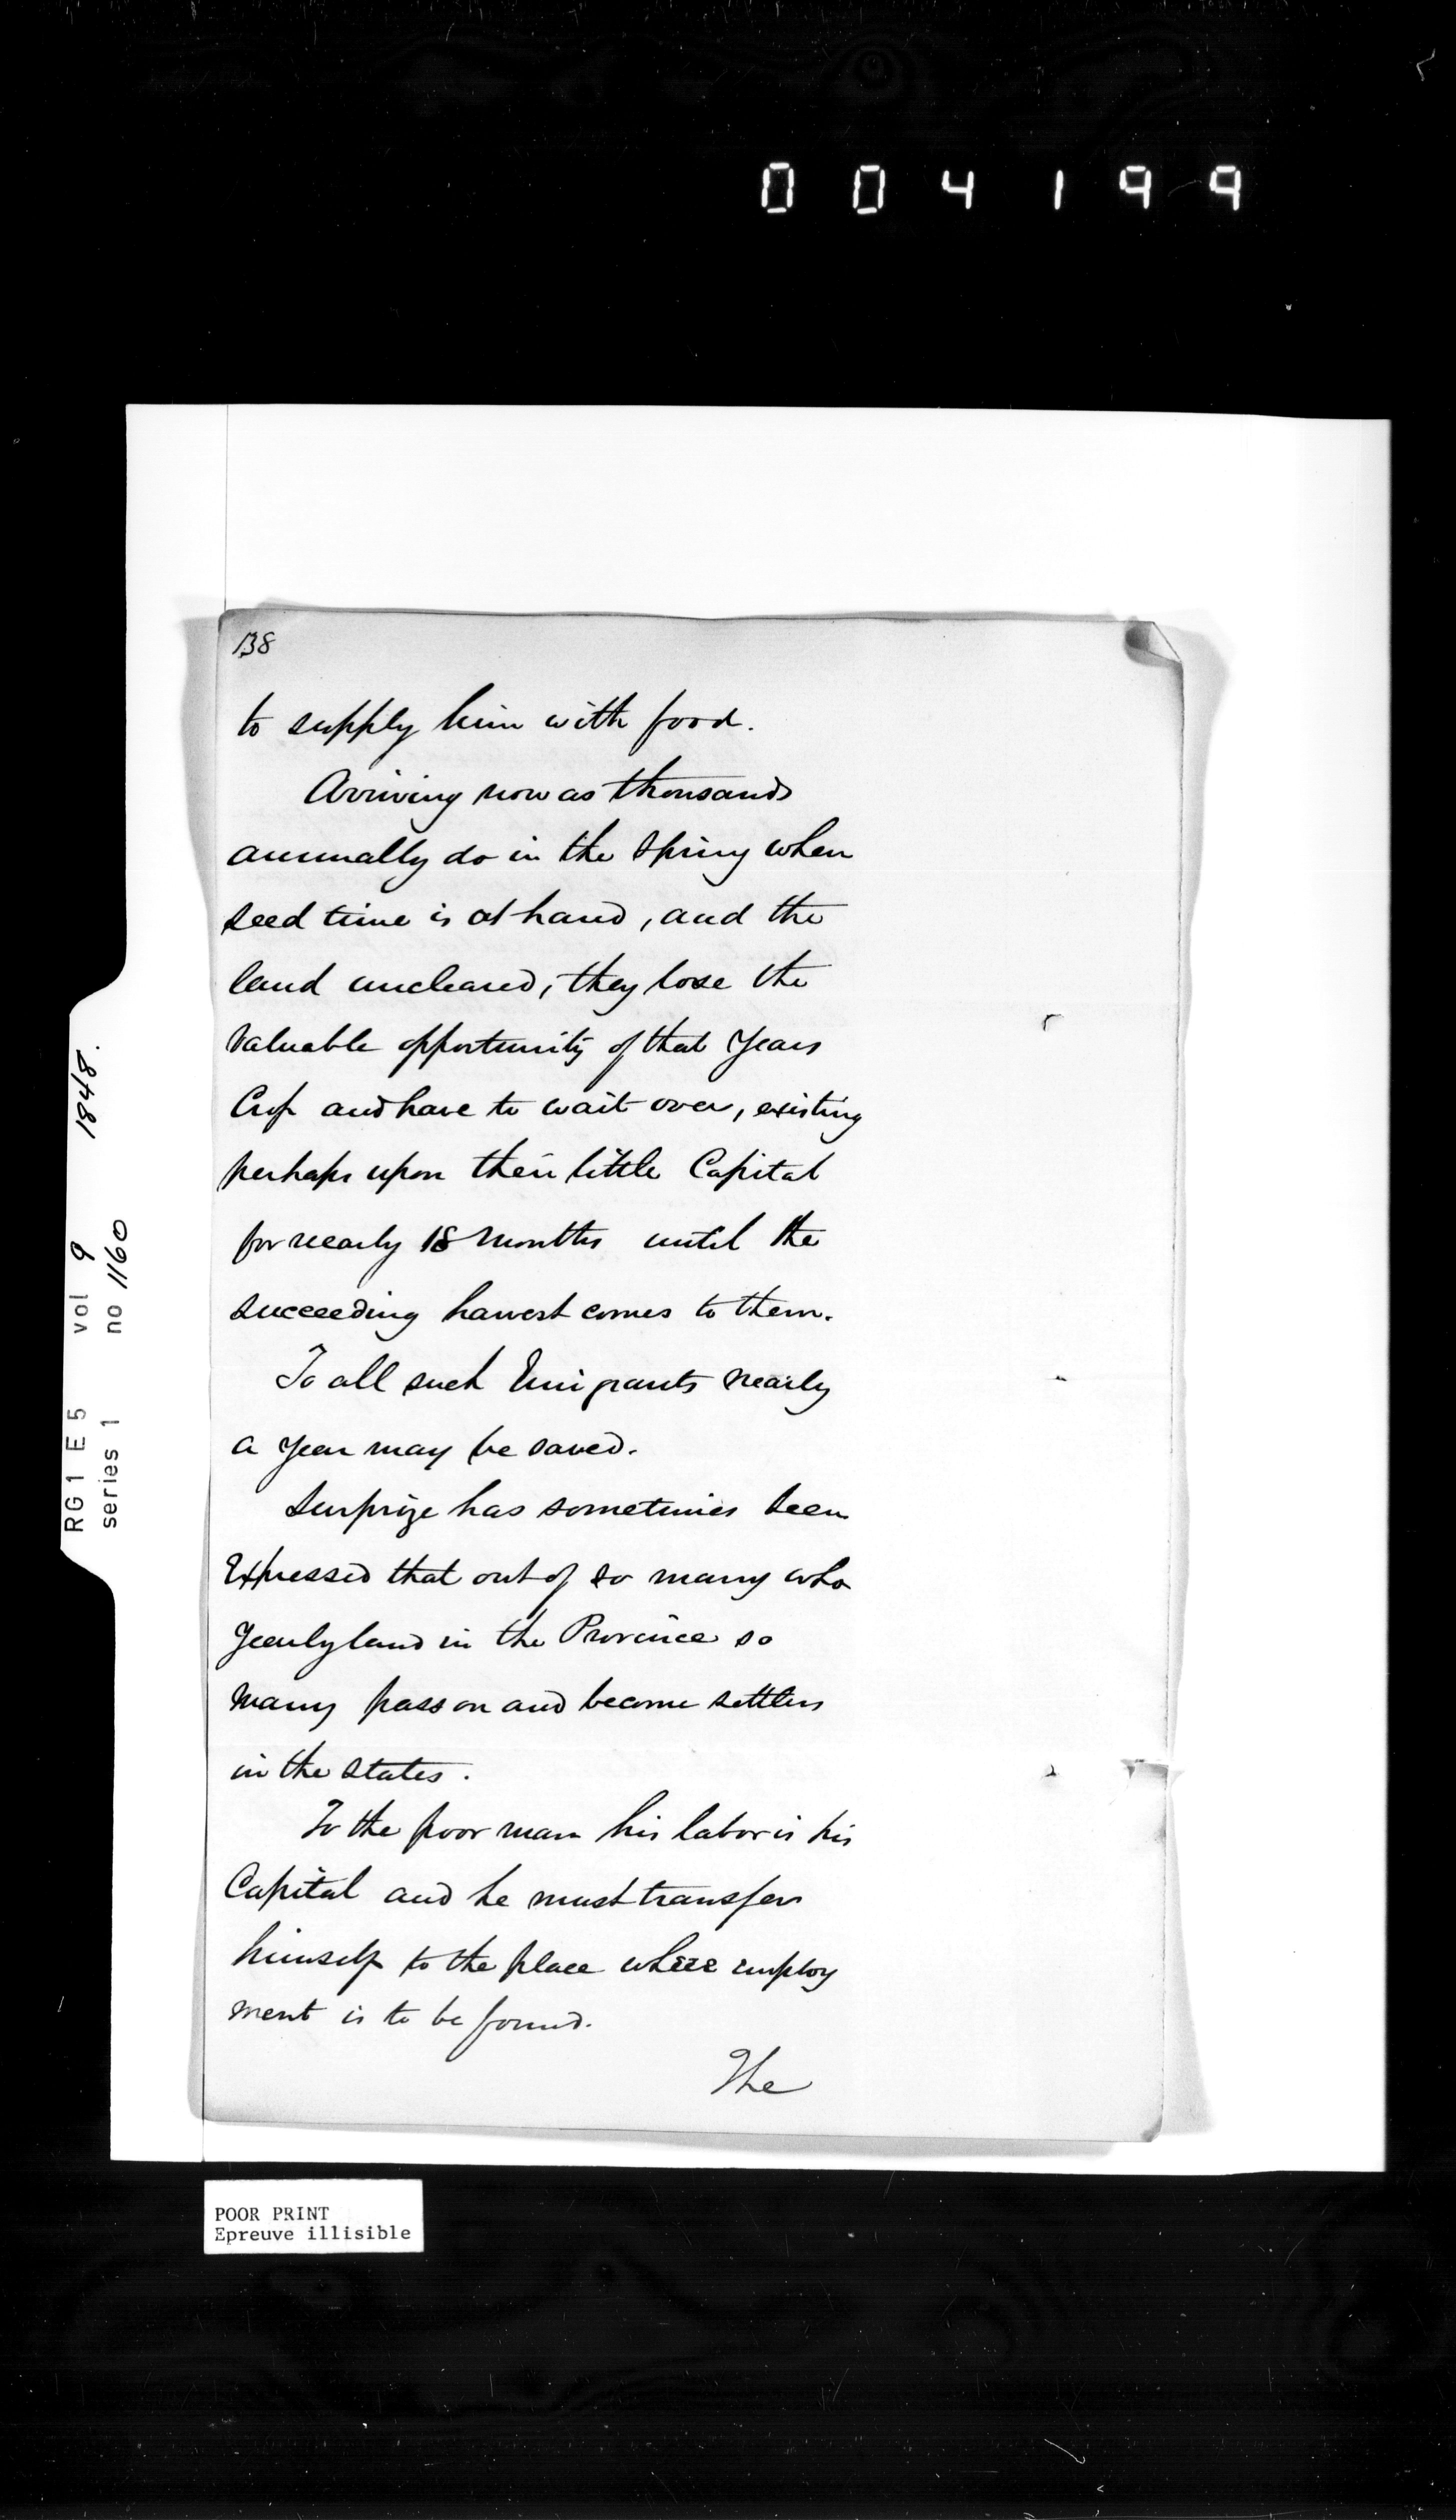 004199
138
to supply him with food.
Arriving now as thousands
annually do in the spring when
seed time is at hand, and the
land uncleared, they lose the
valuable opportunity of that Years
Crop and have to wait over, existing
perhaps upon their little Capital
for nearly 18 Months until the
succeeding harvest comes to them.
To all such Emigrants nearly
a Year may be saved.
Surprize has sometimes been
Expressed that out of so many who
Yearly land in the Province so
Many pass on and become settlers
in the states.
To the poor man his labor is his
Capital and he must transfer
himself to the place where employ
ment is to be found.
The
RG1 E5 vol 9 1848.
series 1 no 1160
POOR PRINT
Epreuve illisible